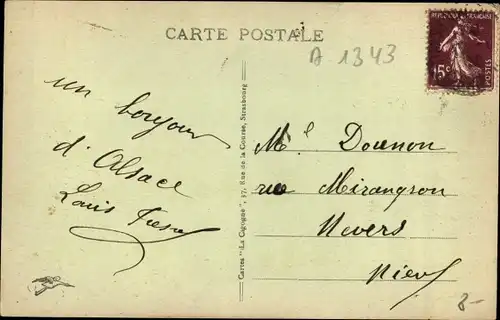 CARTE POSTALE
A 1343
REPUBLIQUE FRANÇAISE
15c
POSTES
un bonjour
d'Alsace
Louis
Cartes "La Cigogne", 37, Rue de la Course, Strasbourg
Ml Dounon
rue Mirangron
Nevers
Nièv
8-